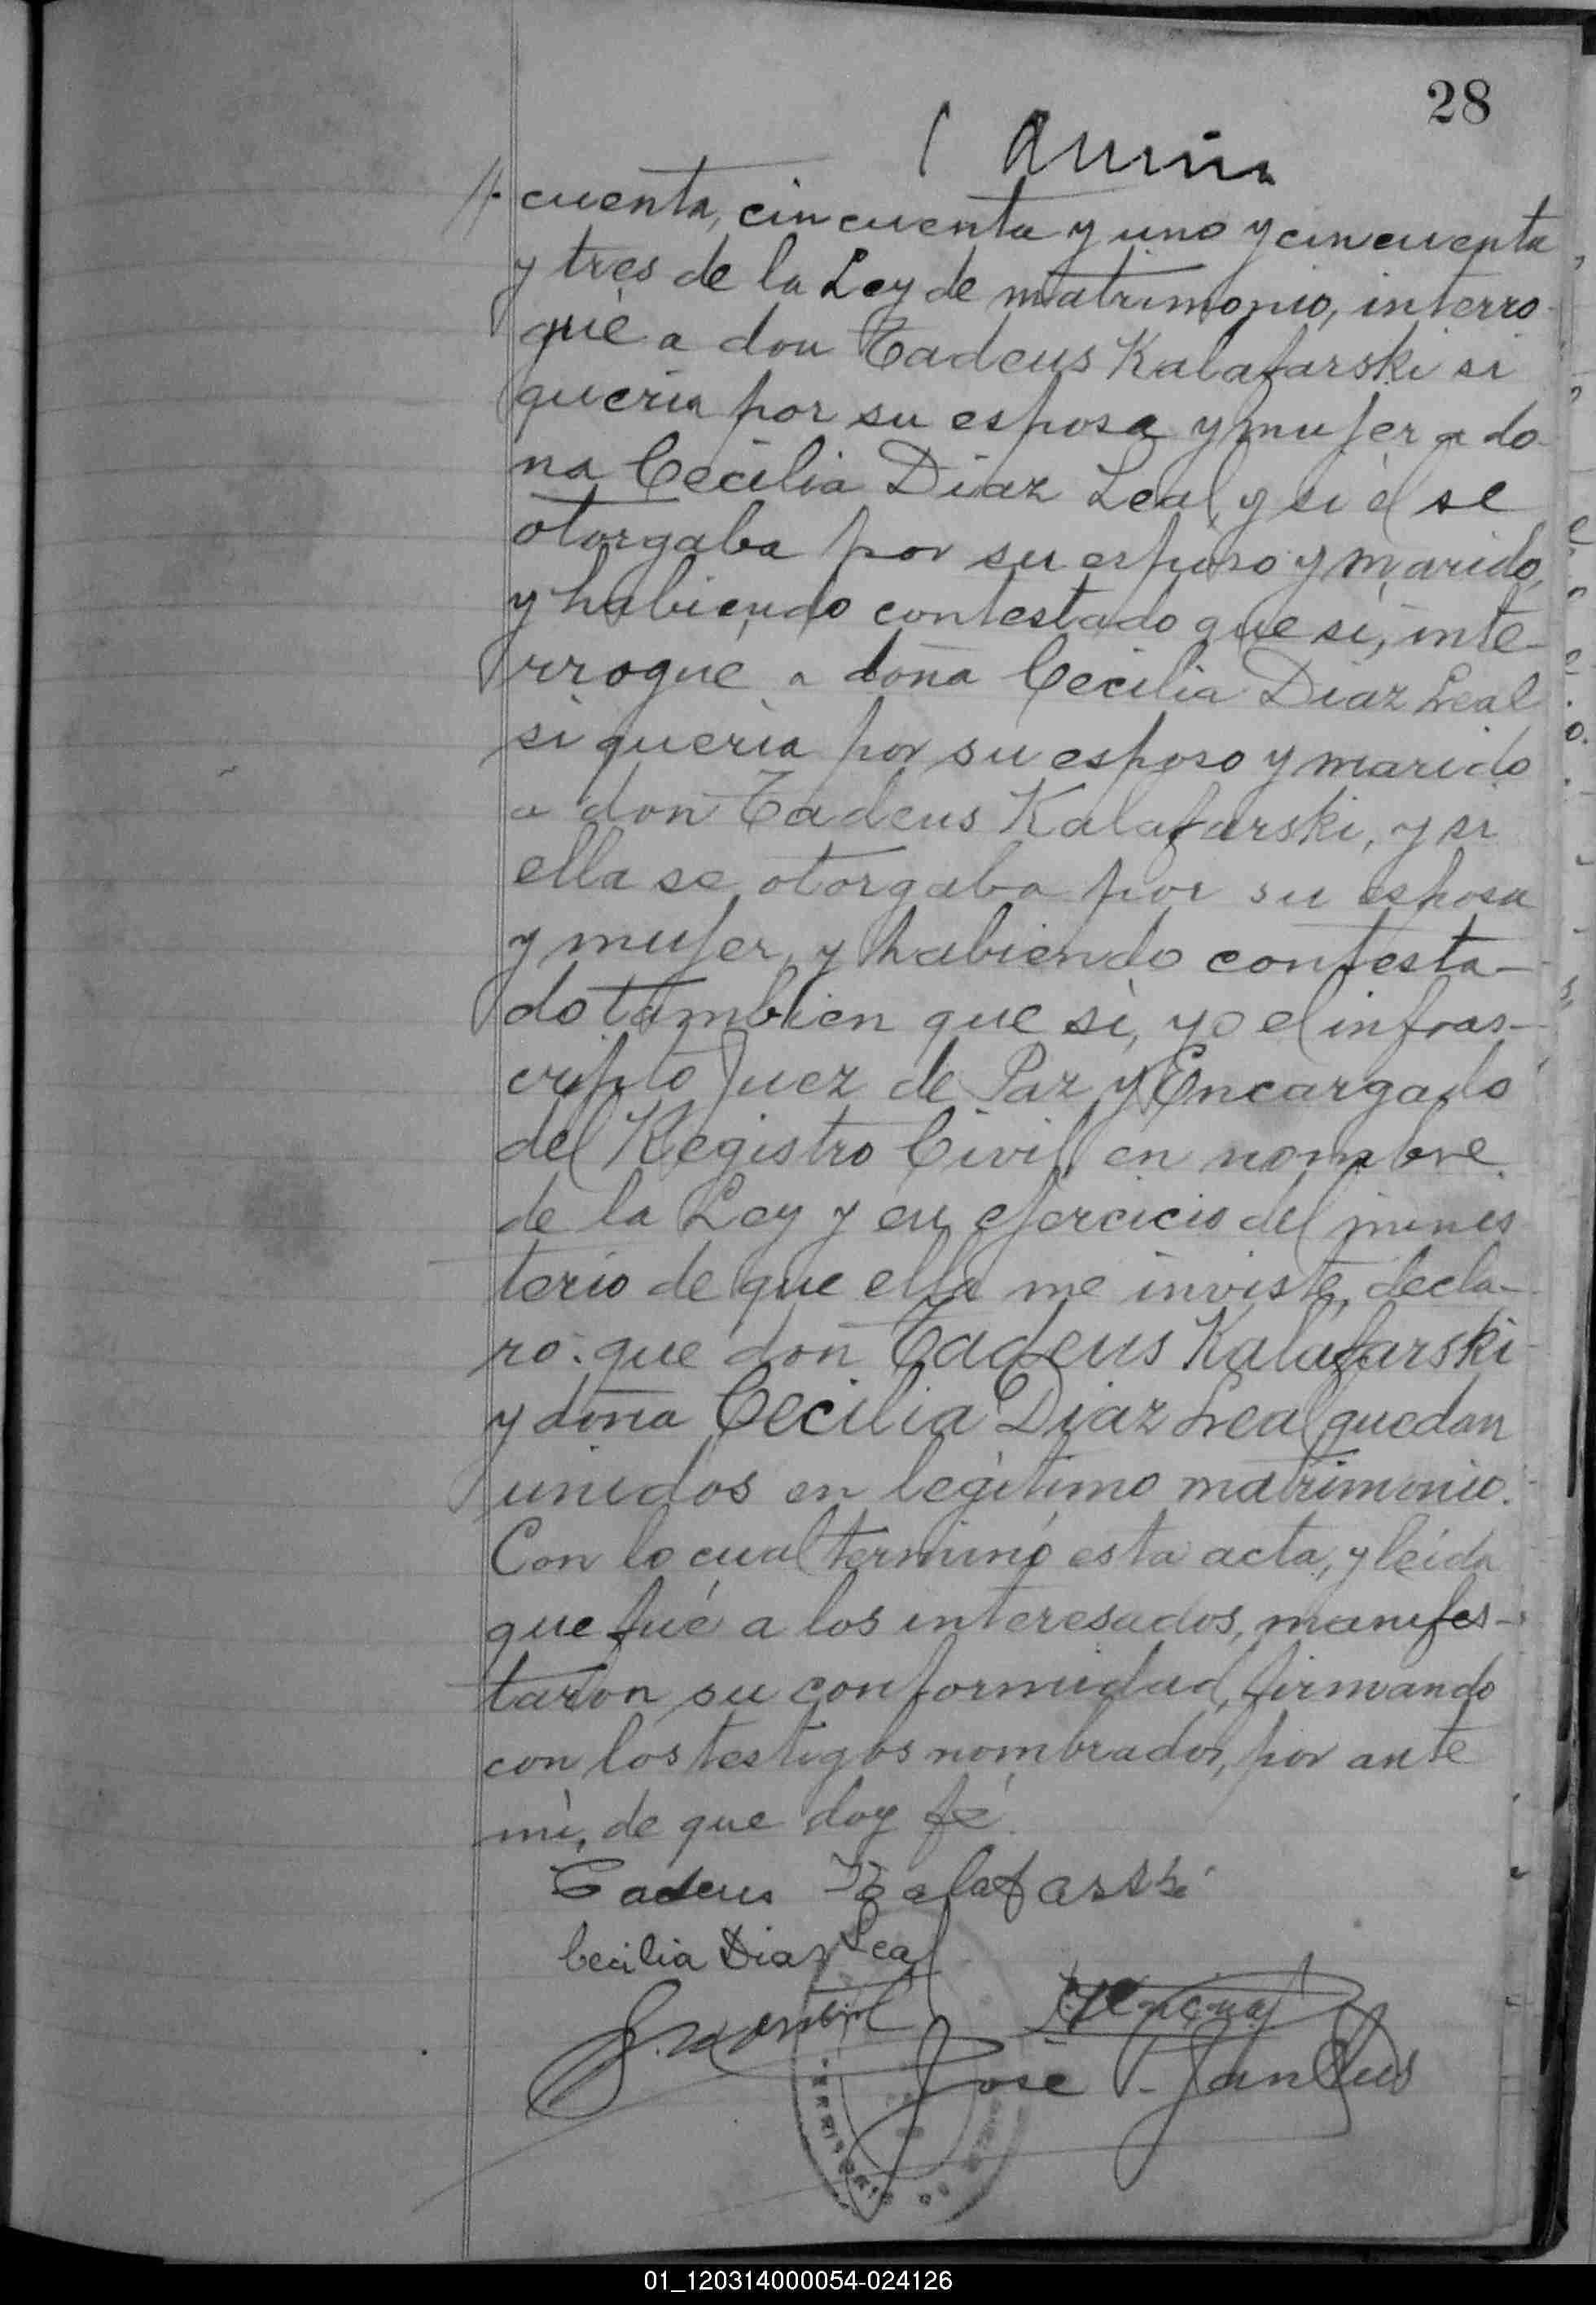 28
//. cuenta, cincuenta y uno y cincuenta
y tres de la Ley de matrimonio, interro-
gué a don Tadeus Kalafarski si
queria por su esposa y mujer a do-
na Cecilia Diaz Leal, y si él se
otorgaba por su esposo y marido,
y habiendo contestado que si, inte-
rrogué a doña Cecilia Diaz Leal
si queria por su esposo y marido
a don Tadeus Kalafarski, y si
ella se otorgaba por su esposa
y mujer, y habiendo contesta-
do tambien que sì, yo el infras-
cripto Juez de Paz y Encargado
del Registro Civil, en nombre
de la Ley y en ejercicio del minis
terio de que ella me inviste, decla-
ro: que don Tadeus Kalafarski
y doña Cecilia Diaz Leal quedan
unidos en legitimo matrimonio.
Con lo cual terminó esta acta, y leida
que fué a los interesados, manifes-
taron su conformidad, firmando
con los testigos nombrados, por ante
mì, de que doy fé.
Tadeus Kalafarski
Cecilia Diaz Leal
José
01_120314000054-024126